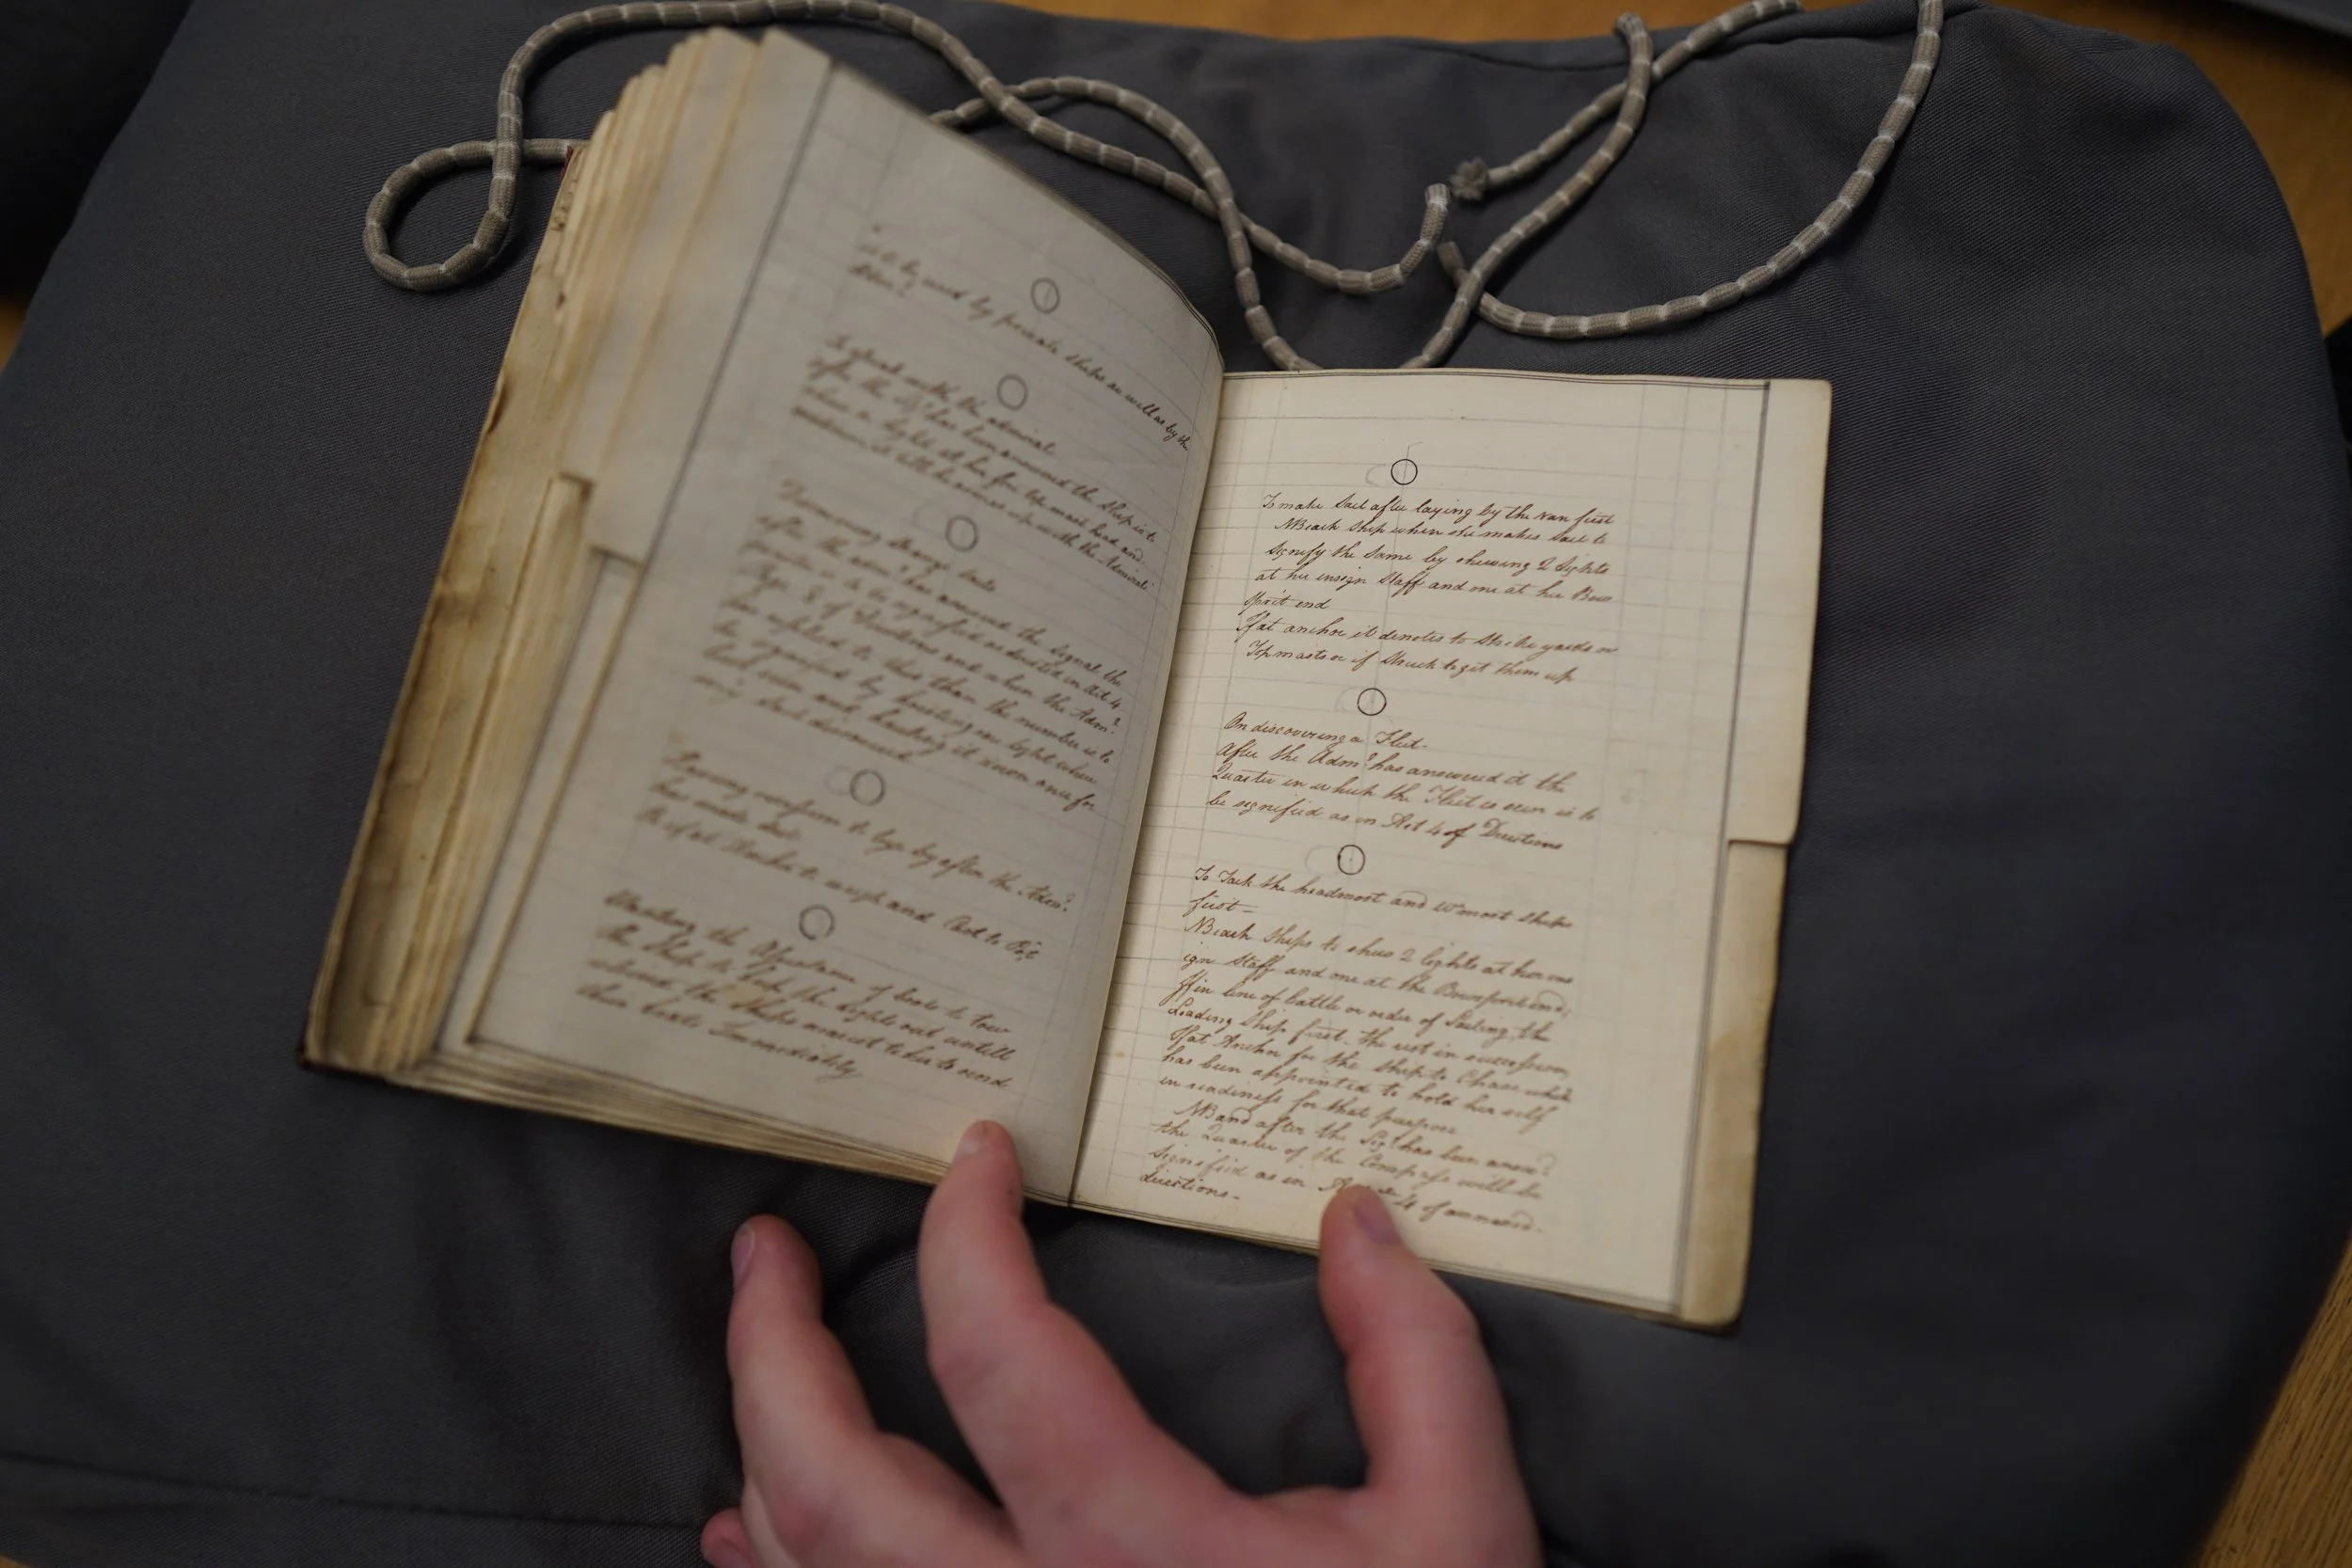 is to be used by private ships as well as by the
Adm.l
To speak with the admiral
after the Sig.l has been answered the Ship is to
shew a light at her fore top mast head and
continue it till she comes up with the Admiral
Discovering strange Sails
after the Adm.l has answered the Signal the
quarter is to be signified as directed in Art 4
Page 8 of Directions and when the Adm.l
has replied to this than the number is to
be signified by hoisting one light when
last seen and hauling it down once for
every Sail discovered
Leaving over from to lye by after the Adm.l
has made Sail
If at Anchor to weigh and
Wanting the Assistance of boats to tow
the Ship to keep the lights out untill
the Ships nearest to her to send
their boats Immediately
To make Sail after laying by the van first
NB each Ship when she makes Sail to
signify the same by shewing 2 lights
at her insign Staff and one at her Bow
sprit end
If at anchor it denotes to strike yards or
Topmasts or if struck to get them up
On discovering a Fleet.
After the Adm.l has answered it the
Quarter in which the Fleet is seen is to
be signified as in Art 4 of Directions
To Tack the headmost and W.most ships
first =
NB each Ships to shew 2 lights at her ens
ign Staff and one at the Bowsprit end;
If in line of battle or order of Sailing the
Leading Ship first. the rest in succession,
If at Anchor for the Ship to Chase which
has been appointed to hold her self
in readiness for that purpose
NB and after the Sig.l has been answ.d
the Quarter of the Compass will be
signified as in 4 of
directions -